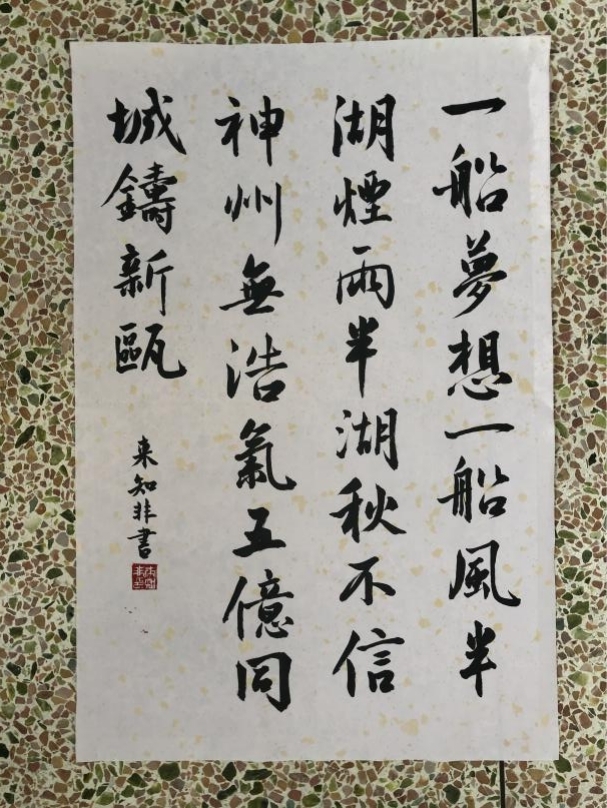 一船夢想一船風半
湖煙雨半湖秋不信
神州無浩氣五億同
城鑄新甌
來知非書